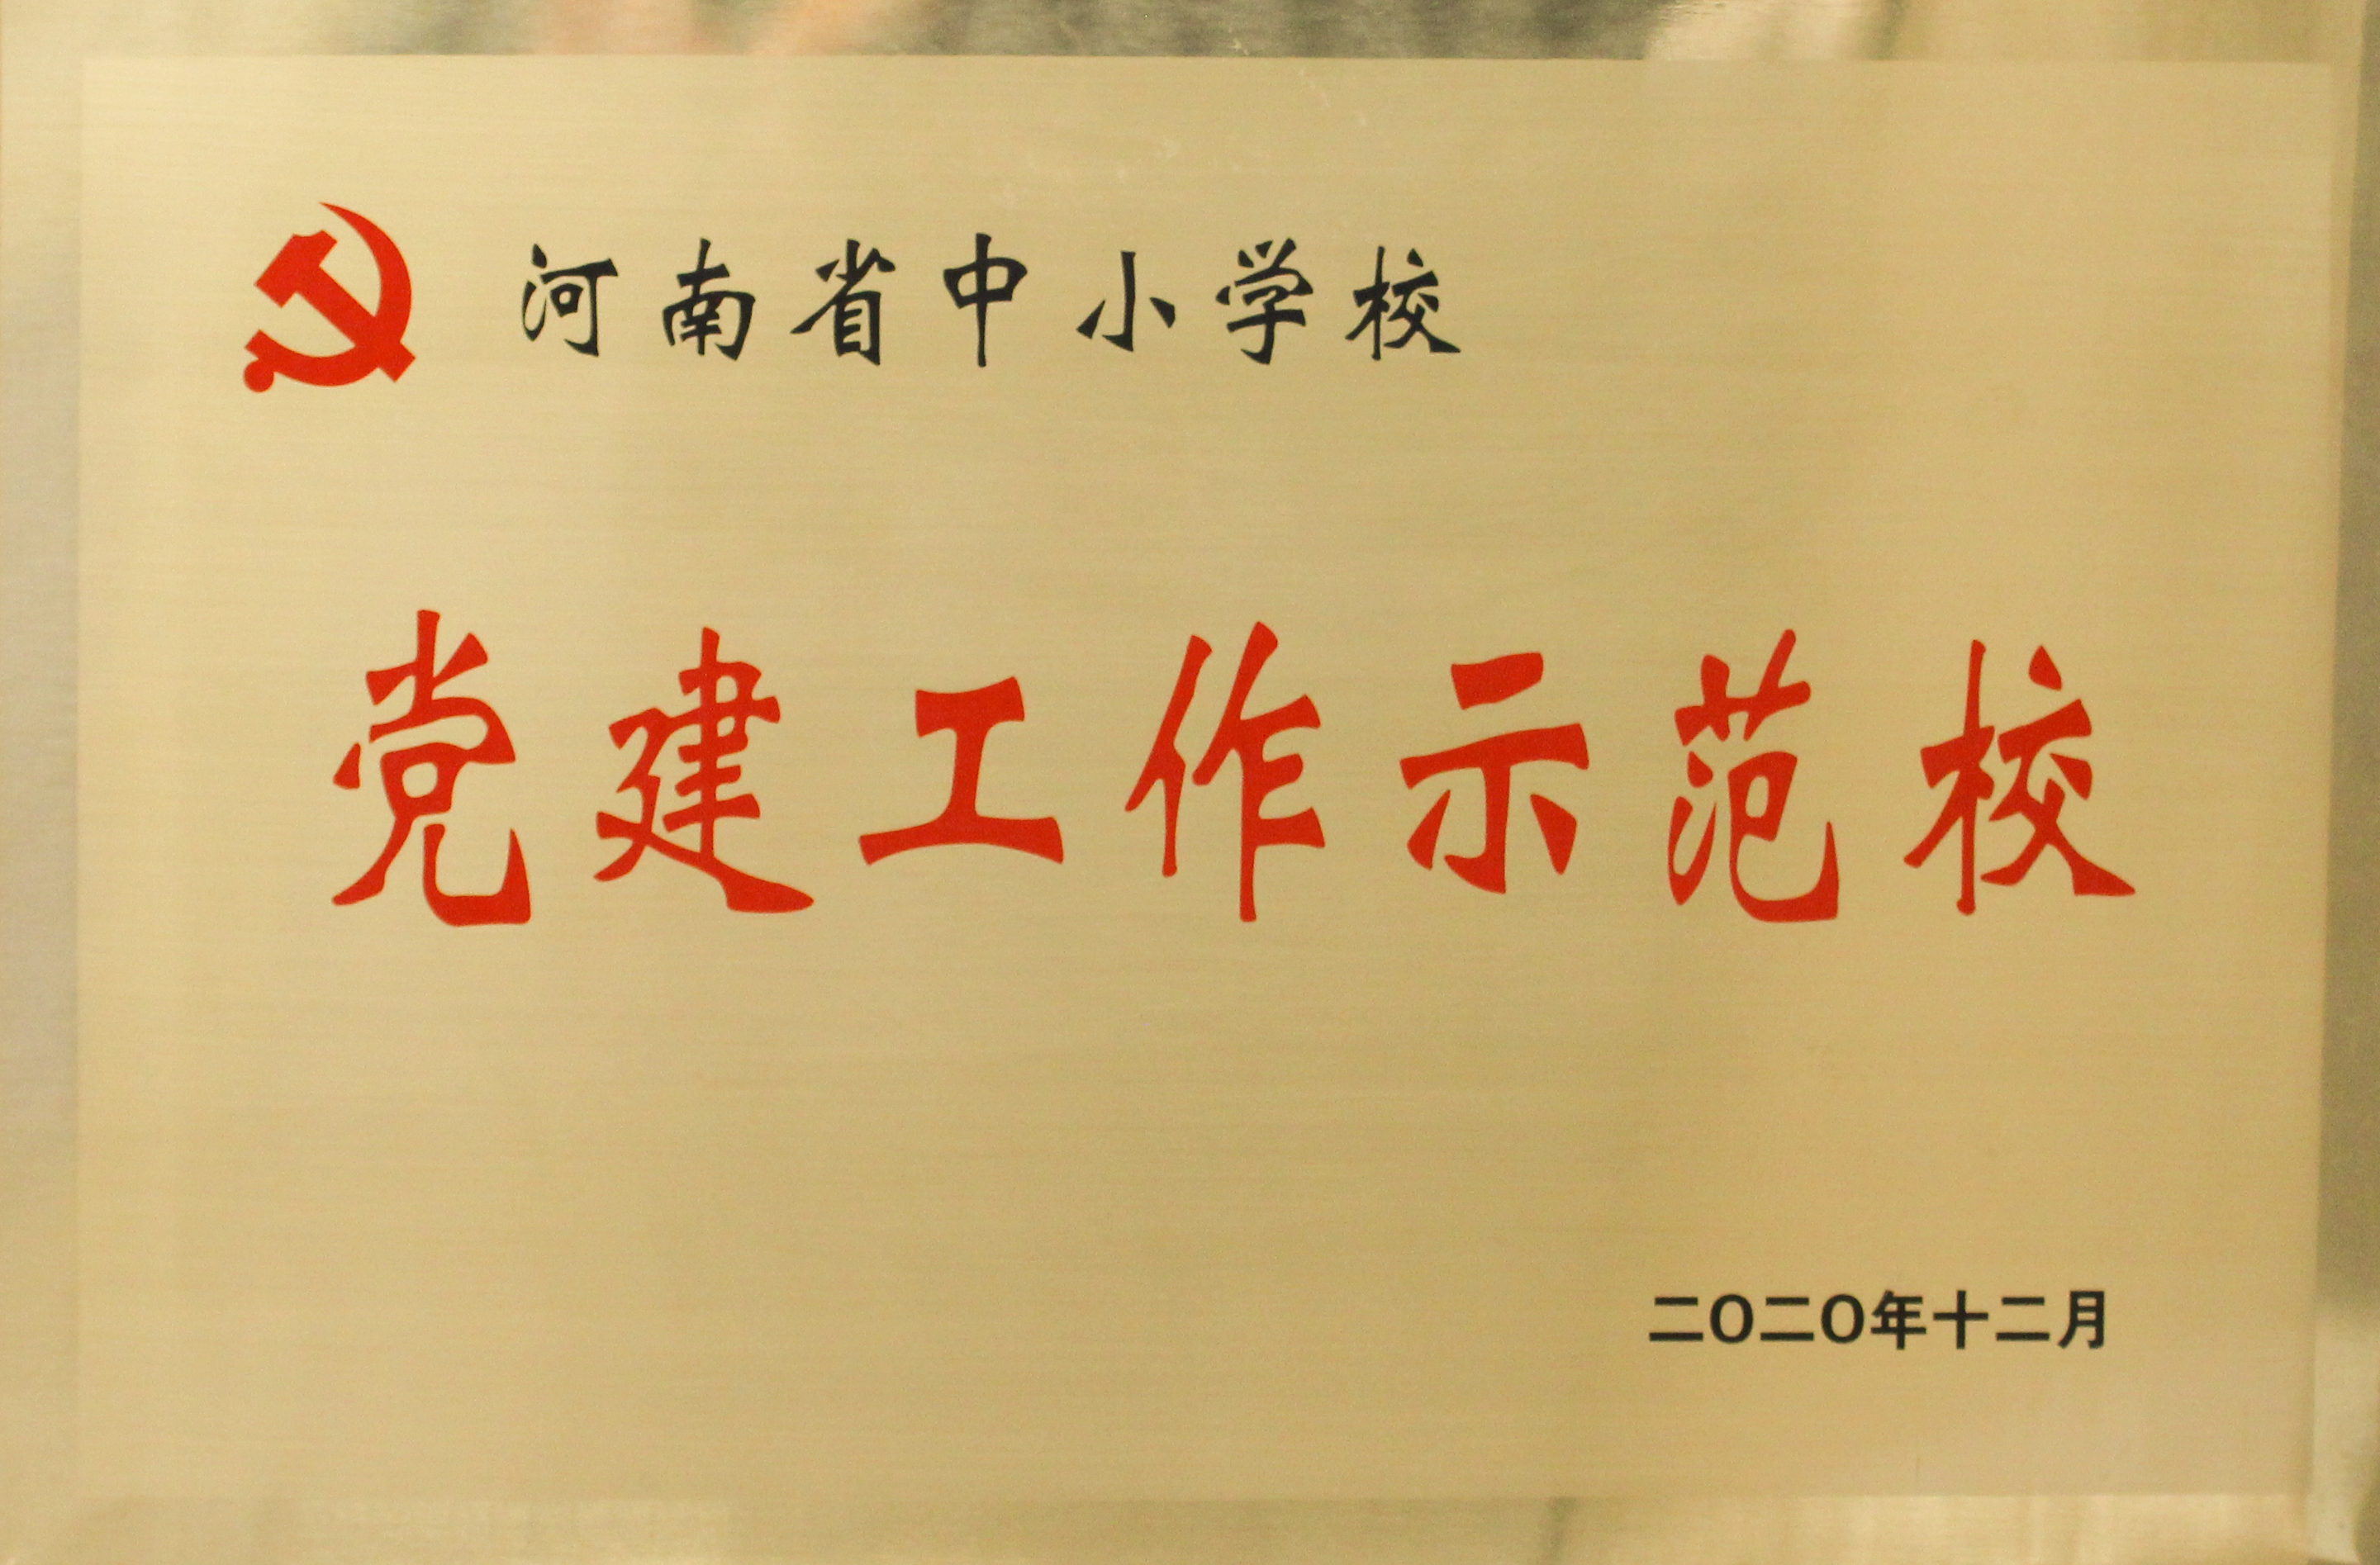 河南省中小学校
党建工作示范校
二〇二〇年十二月